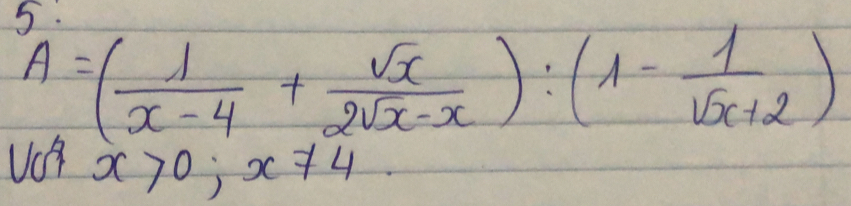 5.
A = (1/(x-4) + √x/(2√x-x)) : (1 - 1/(√x+2))
Với x>0; x≠4.